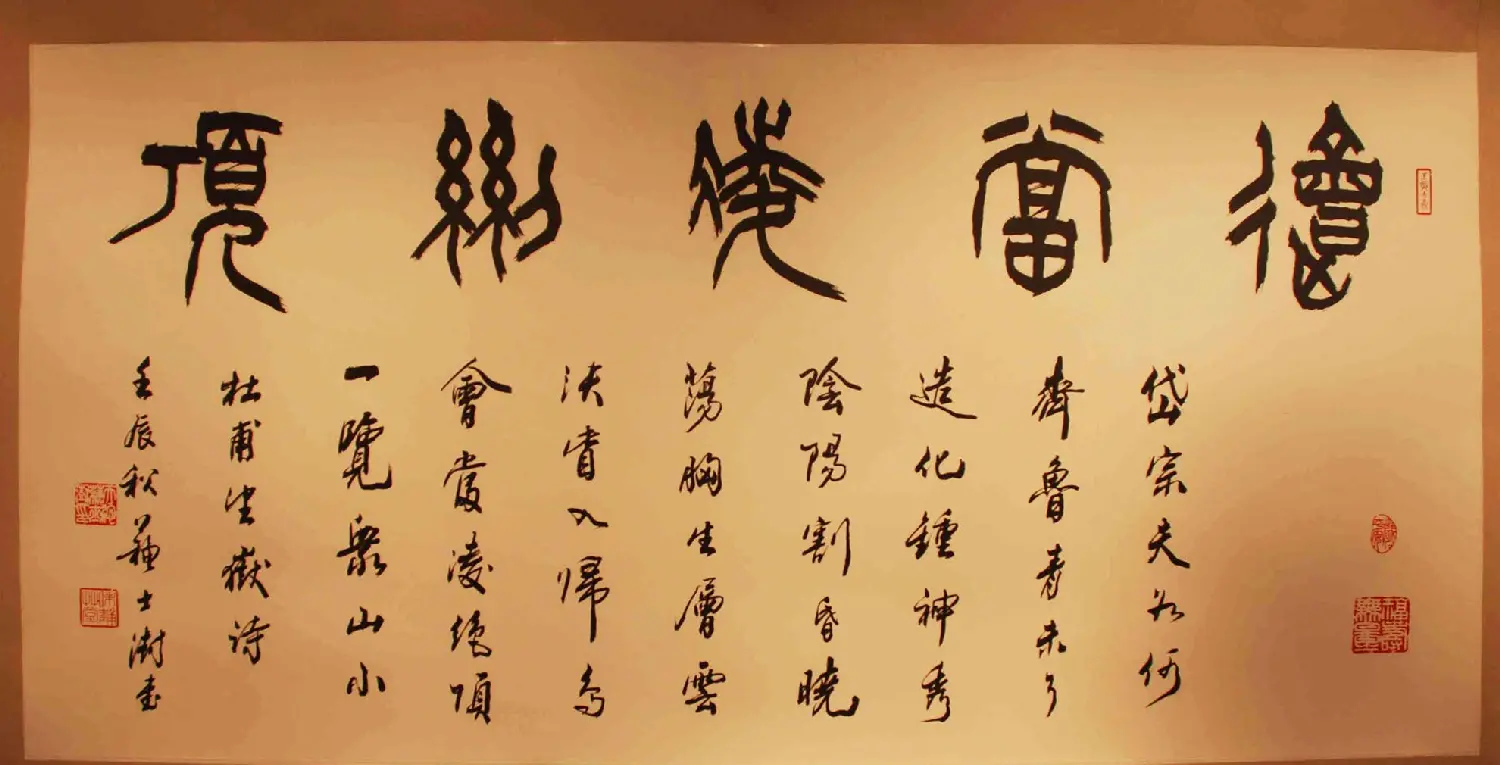 會當凌絕頂
岱宗夫如何
齊魯青未了
造化鍾神秀
陰陽割昏曉
蕩胸生層雲
決眥入歸鳥
會當凌絕頂
一覽衆山小
杜甫望嶽詩
壬辰秋蘇士澍書